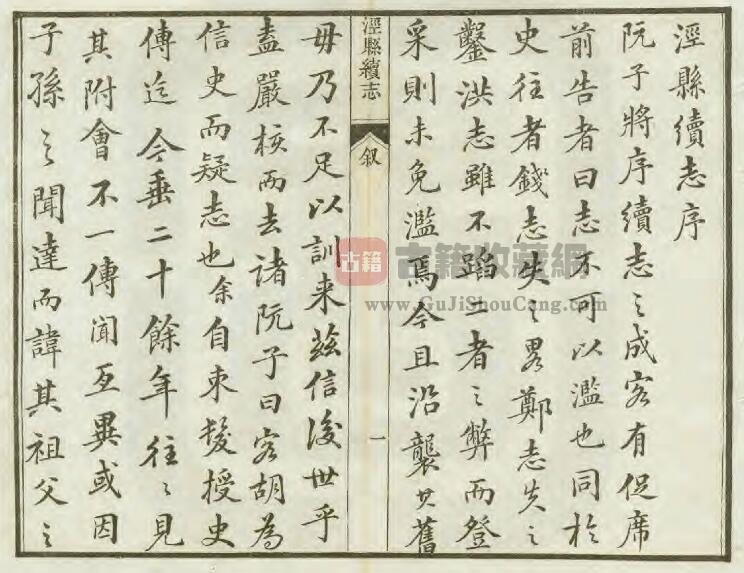 涇縣續志序
阮子將序續志之成客有促席
前告者曰志不可以濫也同於
史往者錢志失之畧鄭志失之
鑿洪志雖不蹈二者之弊而登
采則未免濫焉今且沿襲其舊
涇縣續志
叙
一
毋乃不足以訓来茲信後世乎
盍嚴核而去諸阮子曰客胡為
信史而疑志也余自束髮授史
傳迄今垂二十餘年往々見
其附會不一傳聞互異或因
子孫之聞達而諱其祖父之
古籍
古籍收藏網
www.GuJiShouCang.com